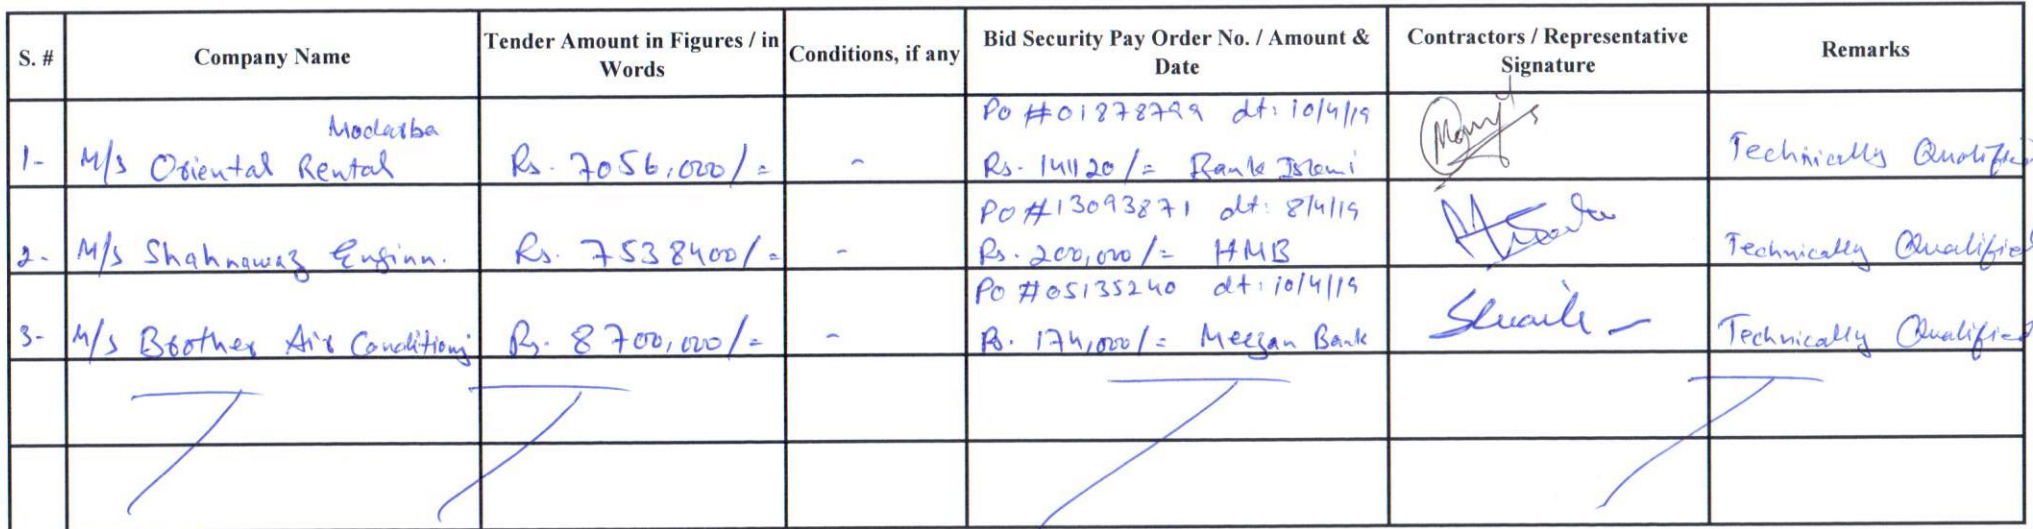 S. #
Company Name
Tender Amount in Figures / in
Words
Conditions, if any
Bid Security Pay Order No. / Amount &
Date
Contractors / Representative
Signature
Remarks
1-
Modarba
M/s Oriental Rental
Rs. 7056,000/=
-
PO #01878799 dt: 10/4/19
Rs. 141120/= Bank Islami
Technically Qualified
2-
M/s Shahnawaz Enginn.
Rs. 7538400/=
-
PO #13093871 dt: 8/4/19
Rs. 200,000/= HMB
Technically Qualified
3-
M/s Brother Air Conditioning
Rs. 8700,000/=
-
PO #05135240 dt: 10/4/19
Rs. 174,000/= Meezan Bank
Technically Qualified